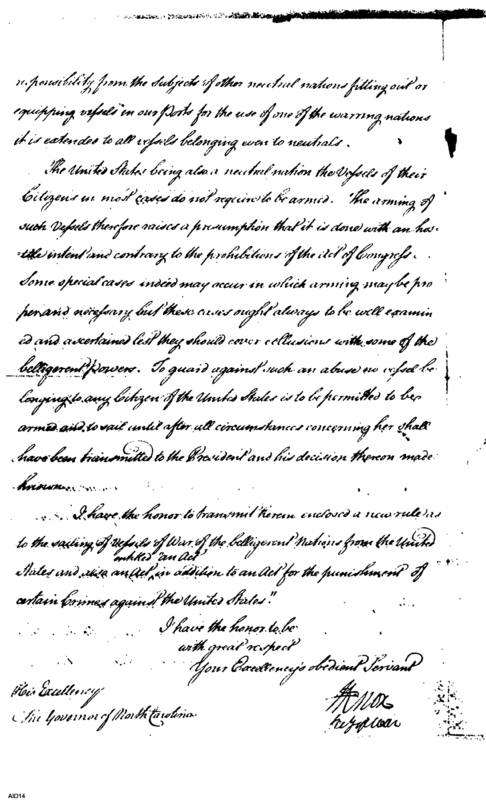 responsibility from the subjects of other neutral nations fitting out or
equipping vessels in our Ports for the use of one of the warring nations
it is extended to all vessels belonging even to neutrals.
The United States being also a neutral nation the Vessels of their
Citizens in most cases do not require to be armed. The arming of
such Vessels therefore raises a presumption that it is done with an hos-
tile intent and contrary to the prohibitions of the Act of Congress.
Some special cases indeed may occur in which arming may be pro
per and necessary but these cases ought always to be well examin
ed and ascertained lest they should cover collusions with some of the
belligerent powers. To guard against such an abuse no vessel be-
longing to any Citizen of the United States is to be permitted to be
armed and to sail until after all circumstances concerning her shall
have been transmitted to the President and his decision thereon made
known.
I have the honor to transmit herein enclosed a new rule as
to the sailing of Vessels of War of the belligerent Nations from the United
entitled "an Act
States and also an Act in addition to an Act for the punishment of
certain Crimes against the United States."
I have the honor to be
with great respect
Your Excellency's obedient Servant
His Excellency
The Governor of North Carolina
H Knox
Secy of War
AID14